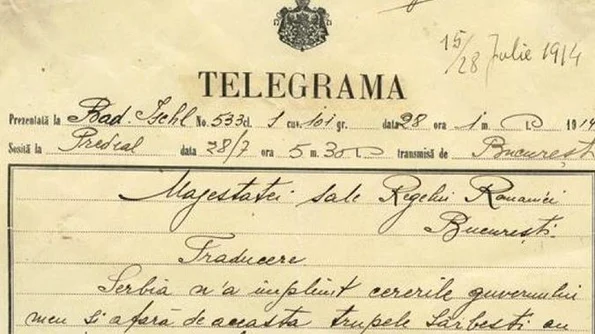 15/28 Iulie 1914
TELEGRAMA
Prezentată la Bad. Ischl No. 533 cl. 1 cuv. 101 gr. data 28 ora 1 m. D 1914
Sosită la Predeal data 28/7 ora 5 m. 30 D transmisă de București
Majestatei sale Regelui României
București.
Traducere
Serbia n'a împlinit cererile guvernului
meu și afară de aceasta trupele sârbești au